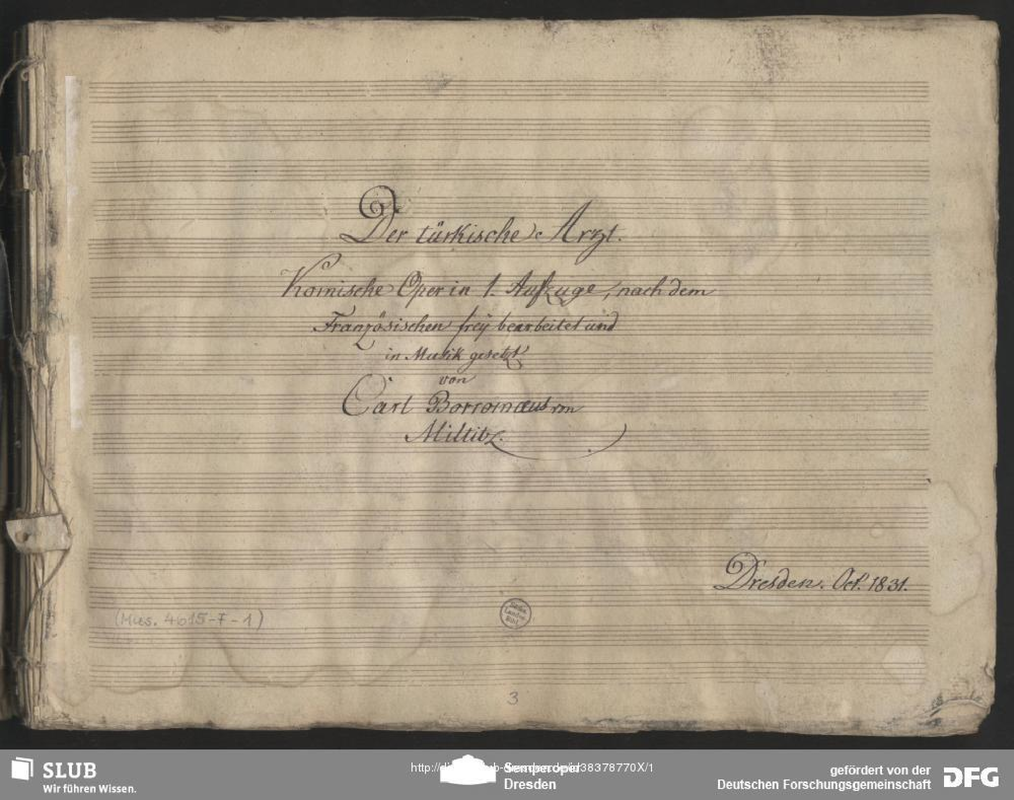 Der türkische Arzt.
Komische Oper in 1. Aufzuge, nach dem
Französischen frey bearbeitet und
in Musik gesetzt
von
Carl Borromæus von
Miltitz.
Dresden. Oct. 1831.
(Mus. 4615-F-1)
3
SLUB
Wir führen Wissen.
Semperoper
Dresden
gefördert von der
Deutschen Forschungsgemeinschaft
DFG